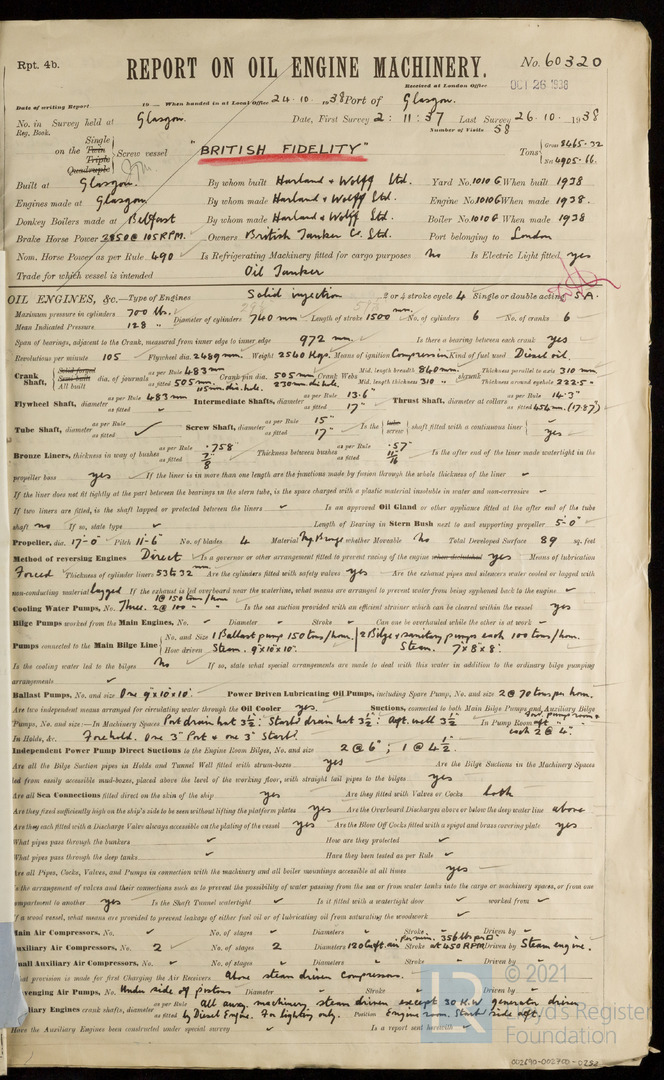 Rpt. 4b.
REPORT ON OIL ENGINE MACHINERY.
No. 60320
Received at London Office
OCT 26 1938
Date of writing Report 19 When handed in at Local Office 24.10.1938 Port of Glasgow.
No. in Survey held at Glasgow. Date, First Survey 2:11:37 Last Survey 26.10.1938
Reg. Book. Number of Visits 58
on the Single Twin Triple Quadruple Screw vessel "BRITISH FIDELITY" Tons Gross 8465.22 Net 4905.66
Built at Glasgow. By whom built Harland & Wolff Ltd. Yard No. 1010G When built 1938
Engines made at Glasgow By whom made Harland & Wolff Ltd. Engine No. 1010G When made 1938.
Donkey Boilers made at Belfast By whom made Harland & Wolff Ltd. Boiler No. 1010G When made 1938
Brake Horse Power 2850 @ 105 RPM. Owners British Tanker Co. Ltd. Port belonging to London
Nom. Horse Power as per Rule 490 Is Refrigerating Machinery fitted for cargo purposes No Is Electric Light fitted yes
Trade for which vessel is intended Oil Tanker
OIL ENGINES, &c.—Type of Engines Solid injection 2 or 4 stroke cycle 4 Single or double acting S.A.
Maximum pressure in cylinders 700 lbs. Diameter of cylinders 740 mm Length of stroke 1500 mm. No. of cylinders 6 No. of cranks 6
Mean Indicated Pressure 128 "
Span of bearings, adjacent to the Crank, measured from inner edge to inner edge 972 mm. Is there a bearing between each crank yes
Revolutions per minute 105 Flywheel dia. 2489 mm. Weight 2540 Kgs. Means of ignition Compression Kind of fuel used Diesel oil.
Crank Shaft, Solid forged Semi built All built dia. of journals as per Rule 483 mm as fitted 505 mm 115 mm dia. hole. Crank pin dia. 505 mm 230 mm dia hole. Crank Webs Mid. length breadth 840 mm. Mid. length thickness 310 " shrunk Thickness parallel to axis 310 mm Thickness around eyehole 222.5 "
Flywheel Shaft, diameter as per Rule 483 mm as fitted ✓ Intermediate Shafts, diameter as per Rule 13.6" as fitted 17" Thrust Shaft, diameter at collars as per Rule 14.3" as fitted 454 mm. (17.87)
Tube Shaft, diameter as per Rule as fitted ✓ Screw Shaft, diameter as per Rule 15" as fitted 17" Is the tube screw shaft fitted with a continuous liner yes
Bronze Liners, thickness in way of bushes as per Rule .758" as fitted 7/8" Thickness between bushes as per Rule .57" as fitted 11/16" Is the after end of the liner made watertight in the
propeller boss yes If the liner is in more than one length are the junctions made by fusion through the whole thickness of the liner ✓
If the liner does not fit tightly at the part between the bearings in the stern tube, is the space charged with a plastic material insoluble in water and non-corrosive ✓
If two liners are fitted, is the shaft lapped or protected between the liners ✓ Is an approved Oil Gland or other appliance fitted at the after end of the tube
shaft no If so, state type ✓ Length of Bearing in Stern Bush next to and supporting propeller 5-0"
Propeller, dia. 17-0 Pitch 11-6" No. of blades 4 Material whether Moveable No Total Developed Surface 89 sq. feet
Method of reversing Engines Direct Is a governor or other arrangement fitted to prevent racing of the engine when declutched yes Means of lubrication
Forced Thickness of cylinder liners 53 to 32 mm Are the cylinders fitted with safety valves yes Are the exhaust pipes and silencers water cooled or lagged with
non-conducting material lagged If the exhaust is led overboard near the waterline, what means are arranged to prevent water from being syphoned back to the engine ✓
Cooling Water Pumps, No. Three. 1 @ 150 tons/hour 2 @ 100 " " Is the sea suction provided with an efficient strainer which can be cleared within the vessel yes
Bilge Pumps worked from the Main Engines, No. ✓ Diameter ✓ Stroke ✓ Can one be overhauled while the other is at work ✓
Pumps connected to the Main Bilge Line No. and Size 1 Ballast pump 150 tons/hour. 2 Bilge & sanitary pumps each 100 tons/hour.
How driven Steam. 9"x10"x10". Steam. 7"x8"x8".
Is the cooling water led to the bilges No If so, state what special arrangements are made to deal with this water in addition to the ordinary bilge pumping
arrangements ✓
Ballast Pumps, No. and size One 9"x10"x10". Power Driven Lubricating Oil Pumps, including Spare Pump, No. and size 2 @ 70 tons per hour.
Are two independent means arranged for circulating water through the Oil Cooler yes. Suctions, connected to both Main Bilge Pumps and Auxiliary Bilge
Pumps, No. and size:—In Machinery Spaces Port drain hat 3½". Starbd drain hat 3½". Aft. well 3½ In Pump Room each 2 @ 4".
In Holds, &c. Forehold. One 3" Port & one 3" Starbd.
Independent Power Pump Direct Suctions to the Engine Room Bilges, No. and size 2 @ 6"; 1 @ 4½".
Are all the Bilge Suction pipes in Holds and Tunnel Well fitted with strum-boxes yes Are the Bilge Suctions in the Machinery Spaces
led from easily accessible mud-boxes, placed above the level of the working floor, with straight tail pipes to the bilges yes
Are all Sea Connections fitted direct on the skin of the ship yes Are they fitted with Valves or Cocks both
Are they fixed sufficiently high on the ship's side to be seen without lifting the platform plates yes Are the Overboard Discharges above or below the deep water line above
Are they each fitted with a Discharge Valve always accessible on the plating of the vessel yes Are the Blow Off Cocks fitted with a spigot and brass covering plate yes
What pipes pass through the bunkers ✓ How are they protected ✓
What pipes pass through the deep tanks ✓ Have they been tested as per Rule ✓
Are all Pipes, Cocks, Valves, and Pumps in connection with the machinery and all boiler mountings accessible at all times yes
Is the arrangement of valves and their connections such as to prevent the possibility of water passing from the sea or from water tanks into the cargo or machinery spaces, or from one
compartment to another yes Is the Shaft Tunnel watertight ✓ Is it fitted with a watertight door ✓ worked from ✓
If a wood vessel, what means are provided to prevent leakage of either fuel oil or of lubricating oil from saturating the woodwork ✓
Main Air Compressors, No. ✓ No. of stages ✓ Diameters ✓ Stroke ✓ Driven by ✓
Auxiliary Air Compressors, No. 2 No. of stages 2 Diameters 120 cu ft. air per min. 356 lbs per □" Stroke at 450 RPM Driven by Steam engine.
Small Auxiliary Air Compressors, No. ✓ No. of stages ✓ Diameters ✓ Stroke ✓ Driven by ✓
What provision is made for first Charging the Air Receivers Above steam driven compressors.
Scavenging Air Pumps, No. Under side of pistons Diameter Stroke Driven by
Auxiliary Engines crank shafts, diameter as per Rule as fitted All auxy. machinery steam driven except 30 K.W generator driven
by Diesel Engine. For lighting only. Position Engine room. Starbd side aft.
Have the Auxiliary Engines been constructed under special survey ✓ Is a report sent herewith ✓
LR © 2021
Lloyd's Register
Foundation
002690-002700-0252